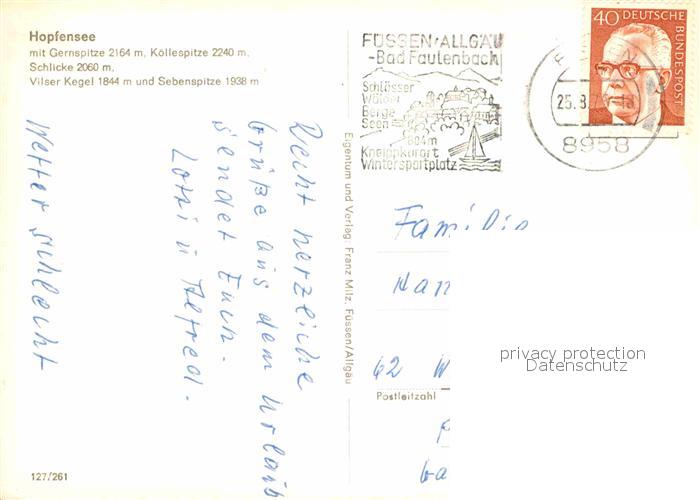 Hopfensee
mit Gernspitze 2164 m, Köllespitze 2240 m,
Schlicke 2060 m,
Vilser Kegel 1844 m und Sebenspitze 1938 m
FÜSSEN/ALLGÄU
-Bad Faulenbach
Schlösser
Wälder
Berge
Seen
804m
Kneippkurort
Wintersportplatz
25.8.
8958
40 DEUTSCHE
BUNDESPOST
Recht herzliche
Grüße aus dem Urlaub
sendet Euch.
Lotti u Alfred.
Wetter schlecht
Eigentum und Verlag: Franz Milz, Füssen/Allgäu
Familie
Han
62 W
Postleitzahl
privacy protection
Datenschutz
127/261